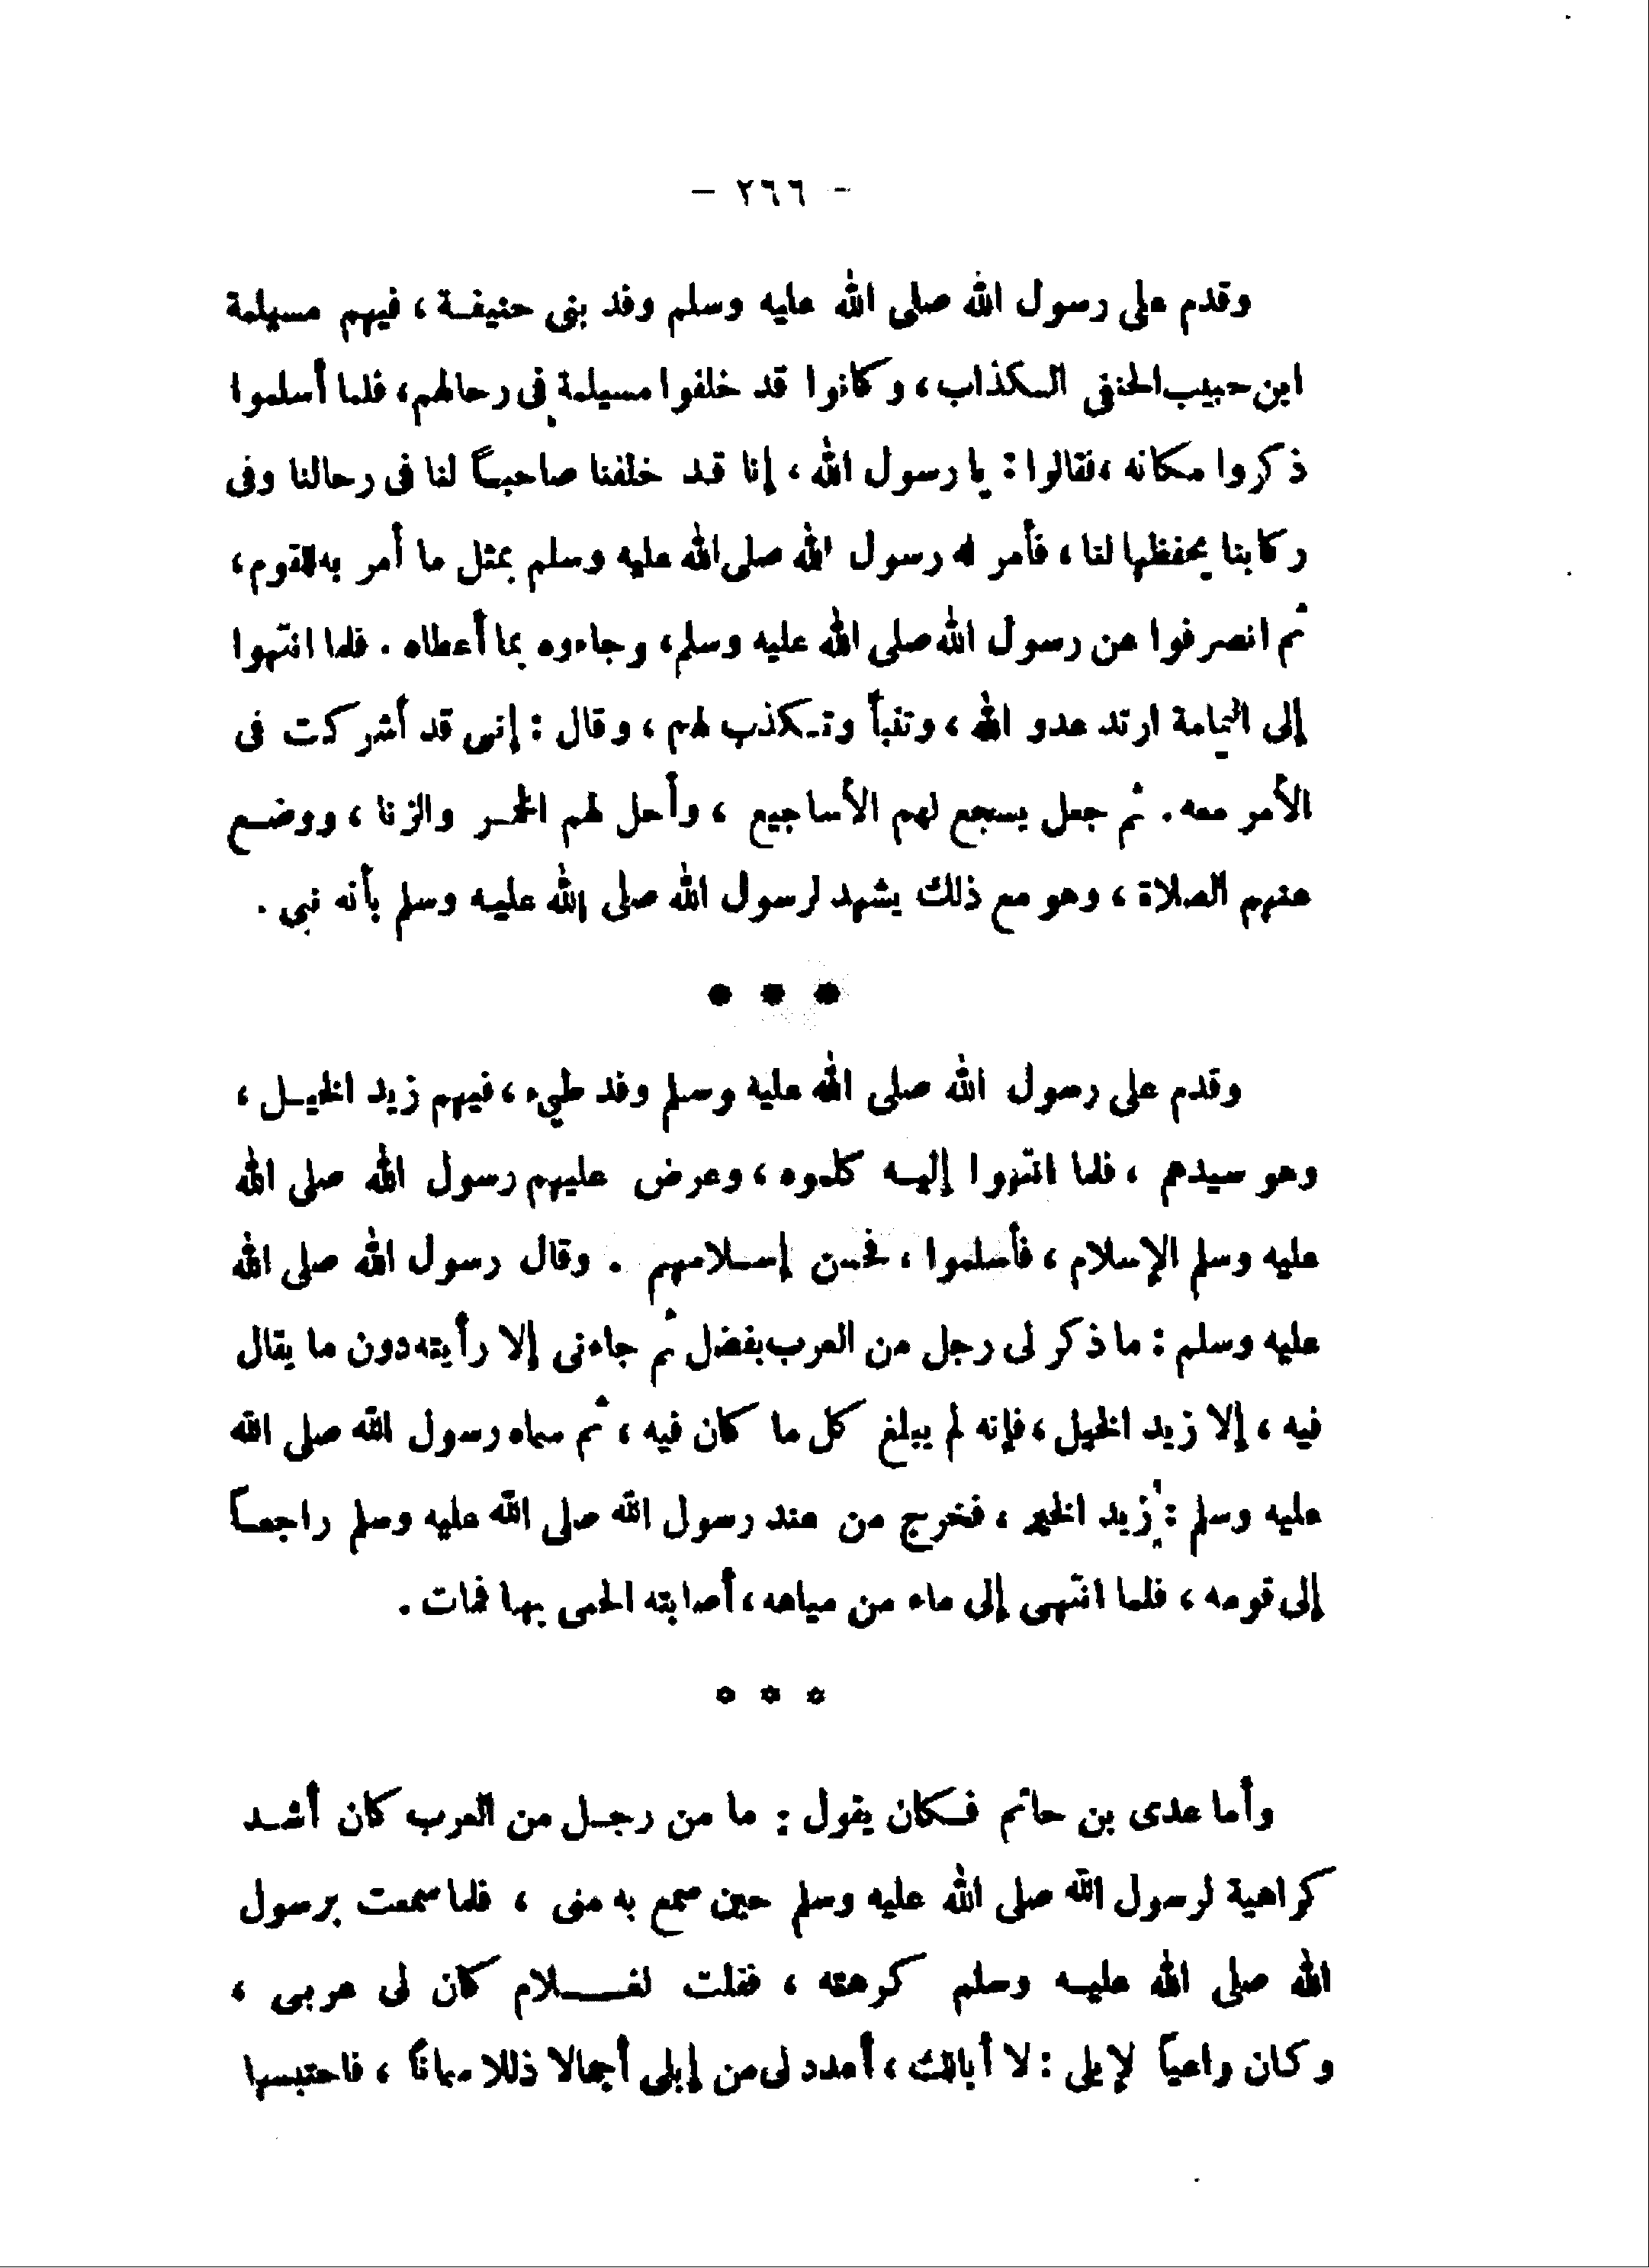 - ٢٦٦ -
وقدم على رسول الله صلى الله عليه وسلم وفد بنى حنيفة ، فيهم مسيلمة
ابن حبيب الحنفى الكذاب ، وكانوا قد خلفوا مسيلمة فى رحالهم ، فلما أسلموا
ذكروا مكانه ، فقالوا : يا رسول الله ، إنا قد خلفنا صاحباً لنا فى رحالنا وفى
ركابنا يحفظها لنا ، فأمر له رسول الله صلى الله عليه وسلم بمثل ما أمر به للقوم ،
ثم انصرفوا عن رسول الله صلى الله عليه وسلم ، وجاءوه بما أعطاه . فلما انتهوا
إلى اليمامة ارتد عدو الله ، وتنبأ وتكذب لهم ، وقال : إنى قد أشركت فى
الأمر معه . ثم جعل يسجع لهم الأساجيع ، وأحل لهم الخمر والزنا ، ووضع
عنهم الصلاة ، وهو مع ذلك يشهد لرسول الله صلى الله عليه وسلم بأنه نبى .
* * *
وقدم على رسول الله صلى الله عليه وسلم وفد طيء ، فيهم زيد الخيل ،
وهو سيدهم ، فلما انتهوا إليه كلموه ، وعرض عليهم رسول الله صلى الله
عليه وسلم الإسلام ، فأسلموا ، فحسن إسلامهم . وقال رسول الله صلى الله
عليه وسلم : ما ذكر لى رجل من العرب بفضل ثم جاءنى إلا رأيته دون ما يقال
فيه ، إلا زيد الخيل ، فإنه لم يبلغ كل ما كان فيه ، ثم سماه رسول الله صلى الله
عليه وسلم : زيد الخير ، فخرج من عند رسول الله صلى الله عليه وسلم راجعاً
إلى قومه ، فلما انتهى إلى ماء من مياهه ، أصابته الحمى بها فمات .
* * *
وأما عدى بن حاتم فكان يقول : ما من رجل من العرب كان أشد
كراهية لرسول الله صلى الله عليه وسلم حين سمع به منى ، فلما سمعت برسول
الله صلى الله عليه وسلم كرهته ، فقلت لغلام كان لى عربى ،
وكان راعياً لإبلى : لا أبالك ، أعدد لى من إبلى أجمالا ذللا سماناً ، فاحتبسها